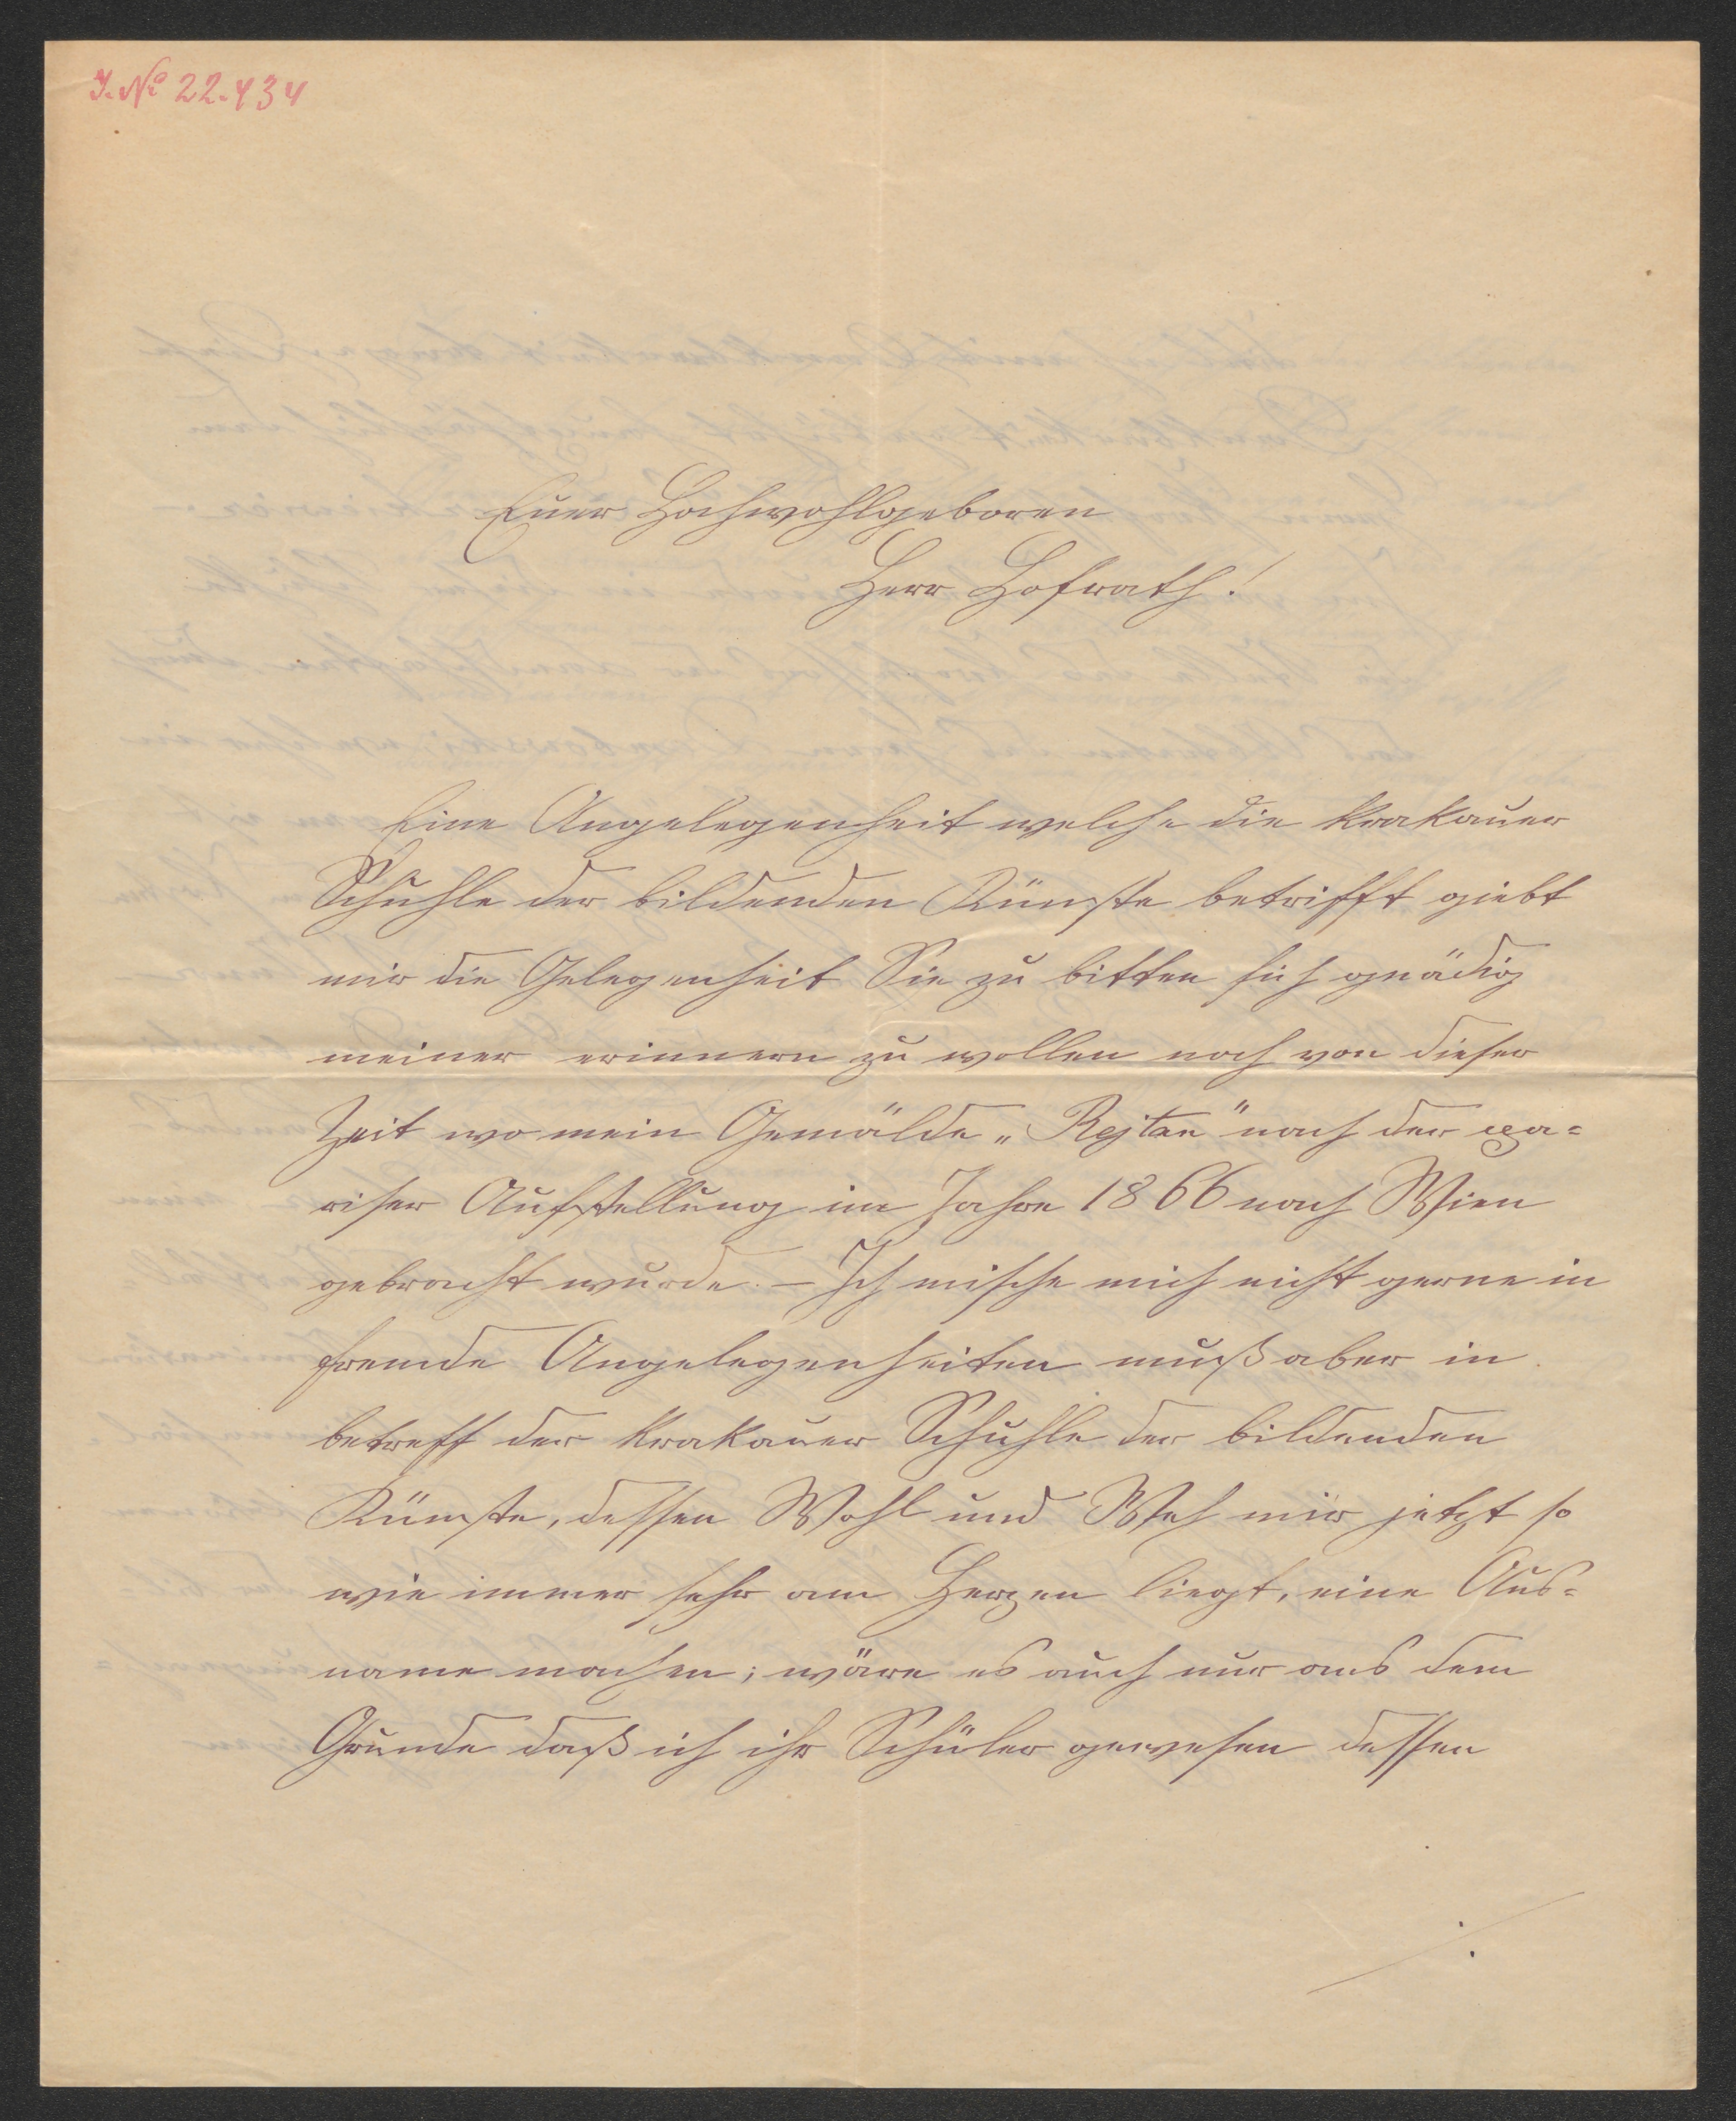 I. No 22.434
Euer Hochwohlgeboren
Herr Hofrath!
Eine Angelegenheit welche die Krakauer
Schuhle der bildenden Künste betrifft giebt
mir die Gelegenheit Sie zu bitten sich gnädig
meiner erinnern zu wollen noch von dieser
Zeit wo mein Gemälde „Rejtan" nach der pa=
riser Aufstellung im Jahre 1866 nach Wien
gebracht wurde. – Ich mische mich nicht gerne in
fremde Angelegenheiten muß aber in
betreff der Krakauer Schuhle der bildenden
Künste, dessen Wohl und Weh mir jetzt so
wie immer sehr am Herzen liegt, eine Aus=
name machen; wäre es auch nur aus dem
Grunde daß ich ihr Schüler gewesen dessen